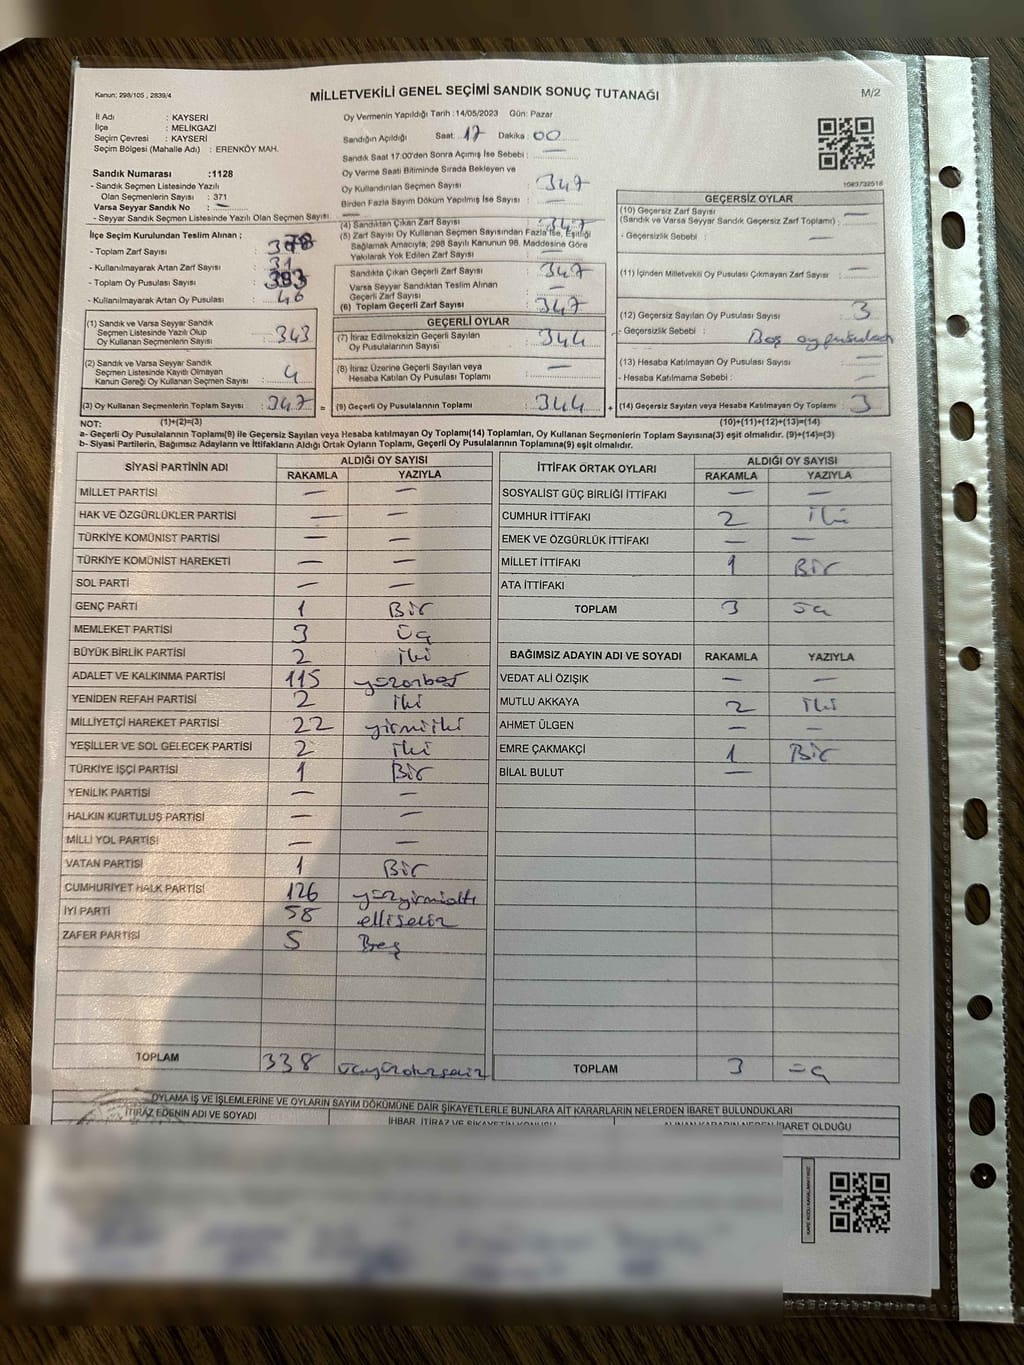 Kanun: 298/105 , 2839/4
MİLLETVEKİLİ GENEL SEÇİMİ SANDIK SONUÇ TUTANAĞI
M/2
İl Adı : KAYSERİ
İlçe : MELİKGAZİ
Seçim Çevresi : KAYSERİ
Seçim Bölgesi (Mahalle Adı) : ERENKÖY MAH.
Sandık Numarası :1128
- Sandık Seçmen Listesinde Yazılı
Olan Seçmenlerin Sayısı : 371
Varsa Seyyar Sandık No :
- Seyyar Sandık Seçmen Listesinde Yazılı Olan Seçmen Sayısı —
İlçe Seçim Kurulundan Teslim Alınan ;
- Toplam Zarf Sayısı : 378
- Kullanılmayarak Artan Zarf Sayısı : 31
- Toplam Oy Pusulası : 393
- Kullanılmayarak Artan Oy Pusulası : 46
(1) Sandık ve Varsa Seyyar Sandık
Seçmen Listesinde Yazılı Olup
Oy Kullanan Seçmenlerin Sayısı : 343
(2) Sandık ve Varsa Seyyar Sandık
Seçmen Listesinde Kayıtlı Olmayan
Kanun Gereği Oy Kullanan Seçmen Sayısı : 4
(3) Oy Kullanan Seçmenlerin Toplam Sayısı : 347
Oy Vermenin Yapıldığı Tarih : 14/05/2023 Gün: Pazar
Sandığın Açıldığı Saat: 17 Dakika : 00
Sandık Saat 17:00'den Sonra Açımış İse Sebebi : —
Oy Verme Saati Bitiminde Sırada Bekleyen ve
Oy Kullandırılan Seçmen Sayısı : 347
Birden Fazla Sayım Döküm Yapılmış İse Sayısı : —
(4) Sandıktan Çıkan Zarf Sayısı : 347
(5) Zarf Sayısı Oy Kullanan Seçmen Sayısından Fazla İse, Eşitliği
Sağlamak Amacıyla, 298 Sayılı Kanunun 98. Maddesine Göre
Yakılarak Yok Edilen Zarf Sayısı : —
Sandıkta Çıkan Geçerli Zarf Sayısı : 347
Varsa Seyyar Sandıktan Teslim Alınan
Geçerli Zarf Sayısı : —
(6) Toplam Geçerli Zarf Sayısı : 347
GEÇERLİ OYLAR
(7) İtiraz Edilmeksizin Geçerli Sayılan
Oy Pusulalarının Sayısı : 344
(8) İtiraz Üzerine Geçerli Sayılan veya
Hesaba Katılan Oy Pusulası Toplamı : —
= (9) Geçerli Oy Pusulalarının Toplamı : 344
1083732518
GEÇERSİZ OYLAR
(10) Geçersiz Zarf Sayısı
(Sandık ve Varsa Seyyar Sandık Geçersiz Zarf Toplamı) : —
- Geçersizlik Sebebi : —
(11) İçinden Milletvekili Oy Pusulası Çıkmayan Zarf Sayısı : —
(12) Geçersiz Sayılan Oy Pusulası Sayısı : 3
- Geçersizlik Sebebi : Boş oy pusulası
(13) Hesaba Katılmayan Oy Pusulası Sayısı : —
- Hesaba Katılmama Sebebi : —
+ (14) Geçersiz Sayılan veya Hesaba Katılmayan Oy Toplamı : 3
NOT: (1)+(2)=(3) (10)+(11)+(12)+(13)=(14)
a- Geçerli Oy Pusulalarının Toplamı(9) ile Geçersiz Sayılan veya Hesaba katılmayan Oy Toplamı(14) Toplamları, Oy Kullanan Seçmenlerin Toplam Sayısına(3) eşit olmalıdır. (9)+(14)=(3)
b- Siyasi Partilerin, Bağımsız Adayların ve İttifakların Aldığı Ortak Oyların Toplamı, Geçerli Oy Pusulalarının Toplamına(9) eşit olmalıdır.
SİYASİ PARTİNİN ADI ALDIĞI OY SAYISI
RAKAMLA YAZIYLA
MİLLET PARTİSİ — —
HAK VE ÖZGÜRLÜKLER PARTİSİ — —
TÜRKİYE KOMÜNİST PARTİSİ — —
TÜRKİYE KOMÜNİST HAREKETİ — —
SOL PARTİ — —
GENÇ PARTİ 1 Bir
MEMLEKET PARTİSİ 3 üç
BÜYÜK BİRLİK PARTİSİ 2 iki
ADALET VE KALKINMA PARTİSİ 115 yüzonbeş
YENİDEN REFAH PARTİSİ 2 iki
MİLLİYETÇİ HAREKET PARTİSİ 22 yirmiiki
YEŞİLLER VE SOL GELECEK PARTİSİ 2 iki
TÜRKİYE İŞÇİ PARTİSİ 1 Bir
YENİLİK PARTİSİ — —
HALKIN KURTULUŞ PARTİSİ — —
MİLLİ YOL PARTİSİ — —
VATAN PARTİSİ 1 Bir
CUMHURİYET HALK PARTİSİ 126 yüzyirmialtı
İYİ PARTİ 58 ellisekiz
ZAFER PARTİSİ 5 Beş
TOPLAM 338 üçyüzotuzsekiz
İTTİFAK ORTAK OYLARI ALDIĞI OY SAYISI
RAKAMLA YAZIYLA
SOSYALİST GÜÇ BİRLİĞİ İTTİFAKI — —
CUMHUR İTTİFAKI 2 iki
EMEK VE ÖZGÜRLÜK İTTİFAKI — —
MİLLET İTTİFAKI 1 Bir
ATA İTTİFAKI
TOPLAM 3 üç
BAĞIMSIZ ADAYIN ADI VE SOYADI RAKAMLA YAZIYLA
VEDAT ALİ ÖZIŞIK — —
MUTLU AKKAYA 2 iki
AHMET ÜLGEN — —
EMRE ÇAKMAKÇİ 1 Bir
BİLAL BULUT —
TOPLAM 3 üç
OYLAMA İŞ VE İŞLEMLERİNE VE OYLARIN SAYIM DÖKÜMÜNE DAİR ŞİKAYETLERLE BUNLARA AİT KARARLARIN NELERDEN İBARET BULUNDUKLARI
İTİRAZ EDENİN ADI VE SOYADI İHBAR, İTİRAZ VE ŞİKAYETİN KONUSU ALINAN KARARIN NEDEN İBARET OLDUĞU